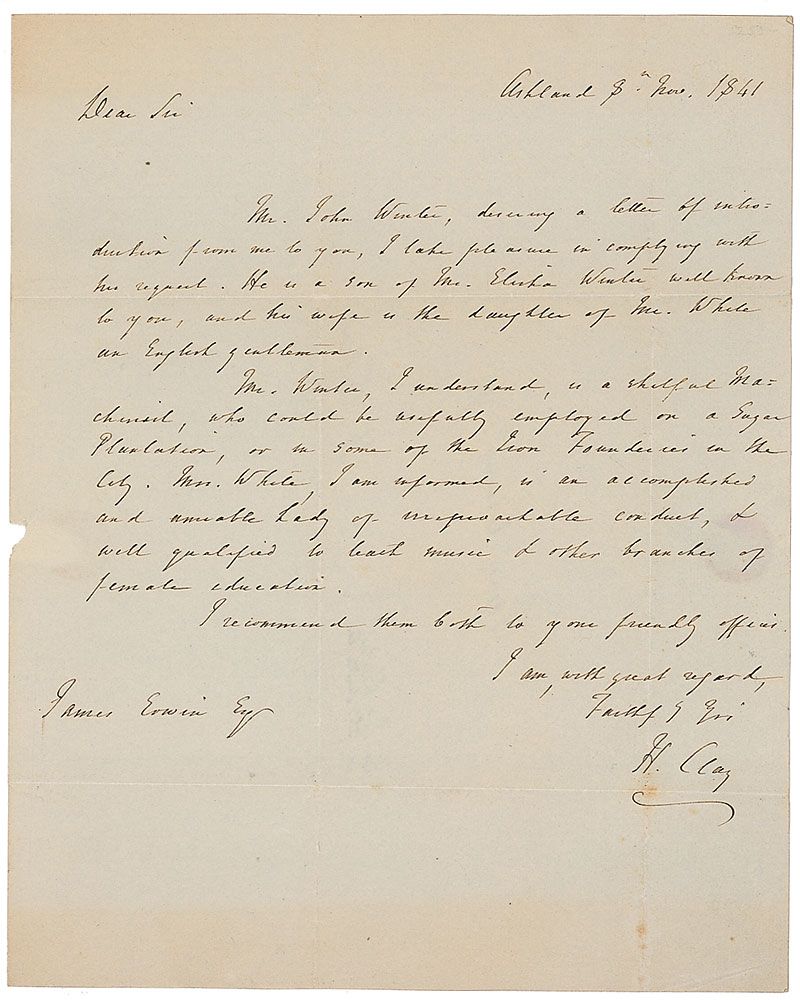 Ashland 8th Nov. 1841
Dear Sir
Mr. John Winter, desiring a letter of intro=
duction from me to you, I take pleasure in complying with
his request. He is a son of Mr. Elisha Winter well known
to you, and his wife is the daughter of Mr. White
an English gentleman.
Mr. Winter, I understand, is a skilful Ma=
chinist, who could be usefully employed on a Sugar
Plantation, or in some of the Iron Founderies in the
City. Mrs. White, I am informed, is an accomplished
and amiable Lady of irreproachable conduct, &
well qualified to teach music & other branches of
female education.
I recommend them both to your friendly offices.
I am, with great regard,
Faithfy Yrs
James Erwin Esqr
H. Clay